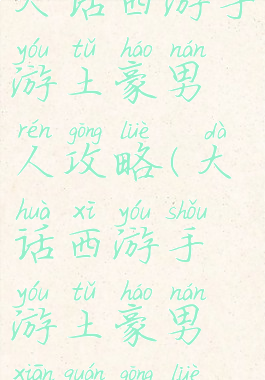 大话西游手
yóu tǔ háo nán
游土豪男
rén gōng lüè dà
人攻略(大
huà xī yóu shǒu
话西游手
yóu tǔ háo nán
游土豪男
xiān quán gōng lüè